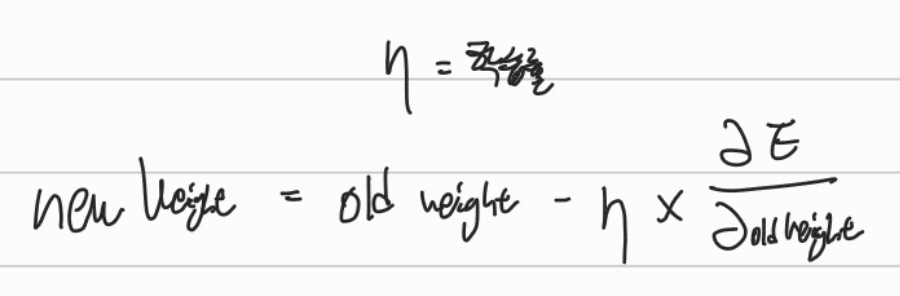 η = 학습률
new weight = old weight - η × ∂E / ∂old weight